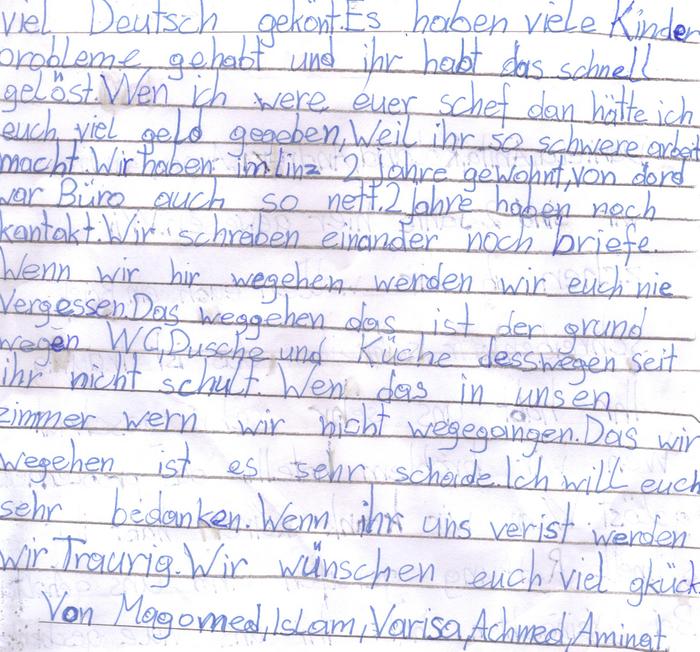 viel Deutsch gekönt.Es haben viele Kinder
probleme, gehabt und ihr habt das schnell
gelöst.Wen ich were euer schef dan hätte ich
euch viel geld gegeben,Weil ihr so schwere arbeit
macht.Wir haben im linz 2 jahre gewohnt,von dord
war Büro auch so nett.2 Jahre haben noch
kontakt.Wir schreiben einander noch briefe.
Wenn wir hir wegehen werden wir euch nie
Vergessen.Das weggehen das ist der grund
wegen WC,Dusche und Küche desswegen seit
ihr nicht schult. Wen das in unsen
zimmer wern wir nicht wegegangen.Das wir
wegehen ist es sehr schade.Ich will euch
sehr bedanken.Wenn ihr uns verist werden
wir.Traurig.Wir wünschen euch viel gkück.
Von Magomed,Islam,Varisa,Achmed,Aminat.